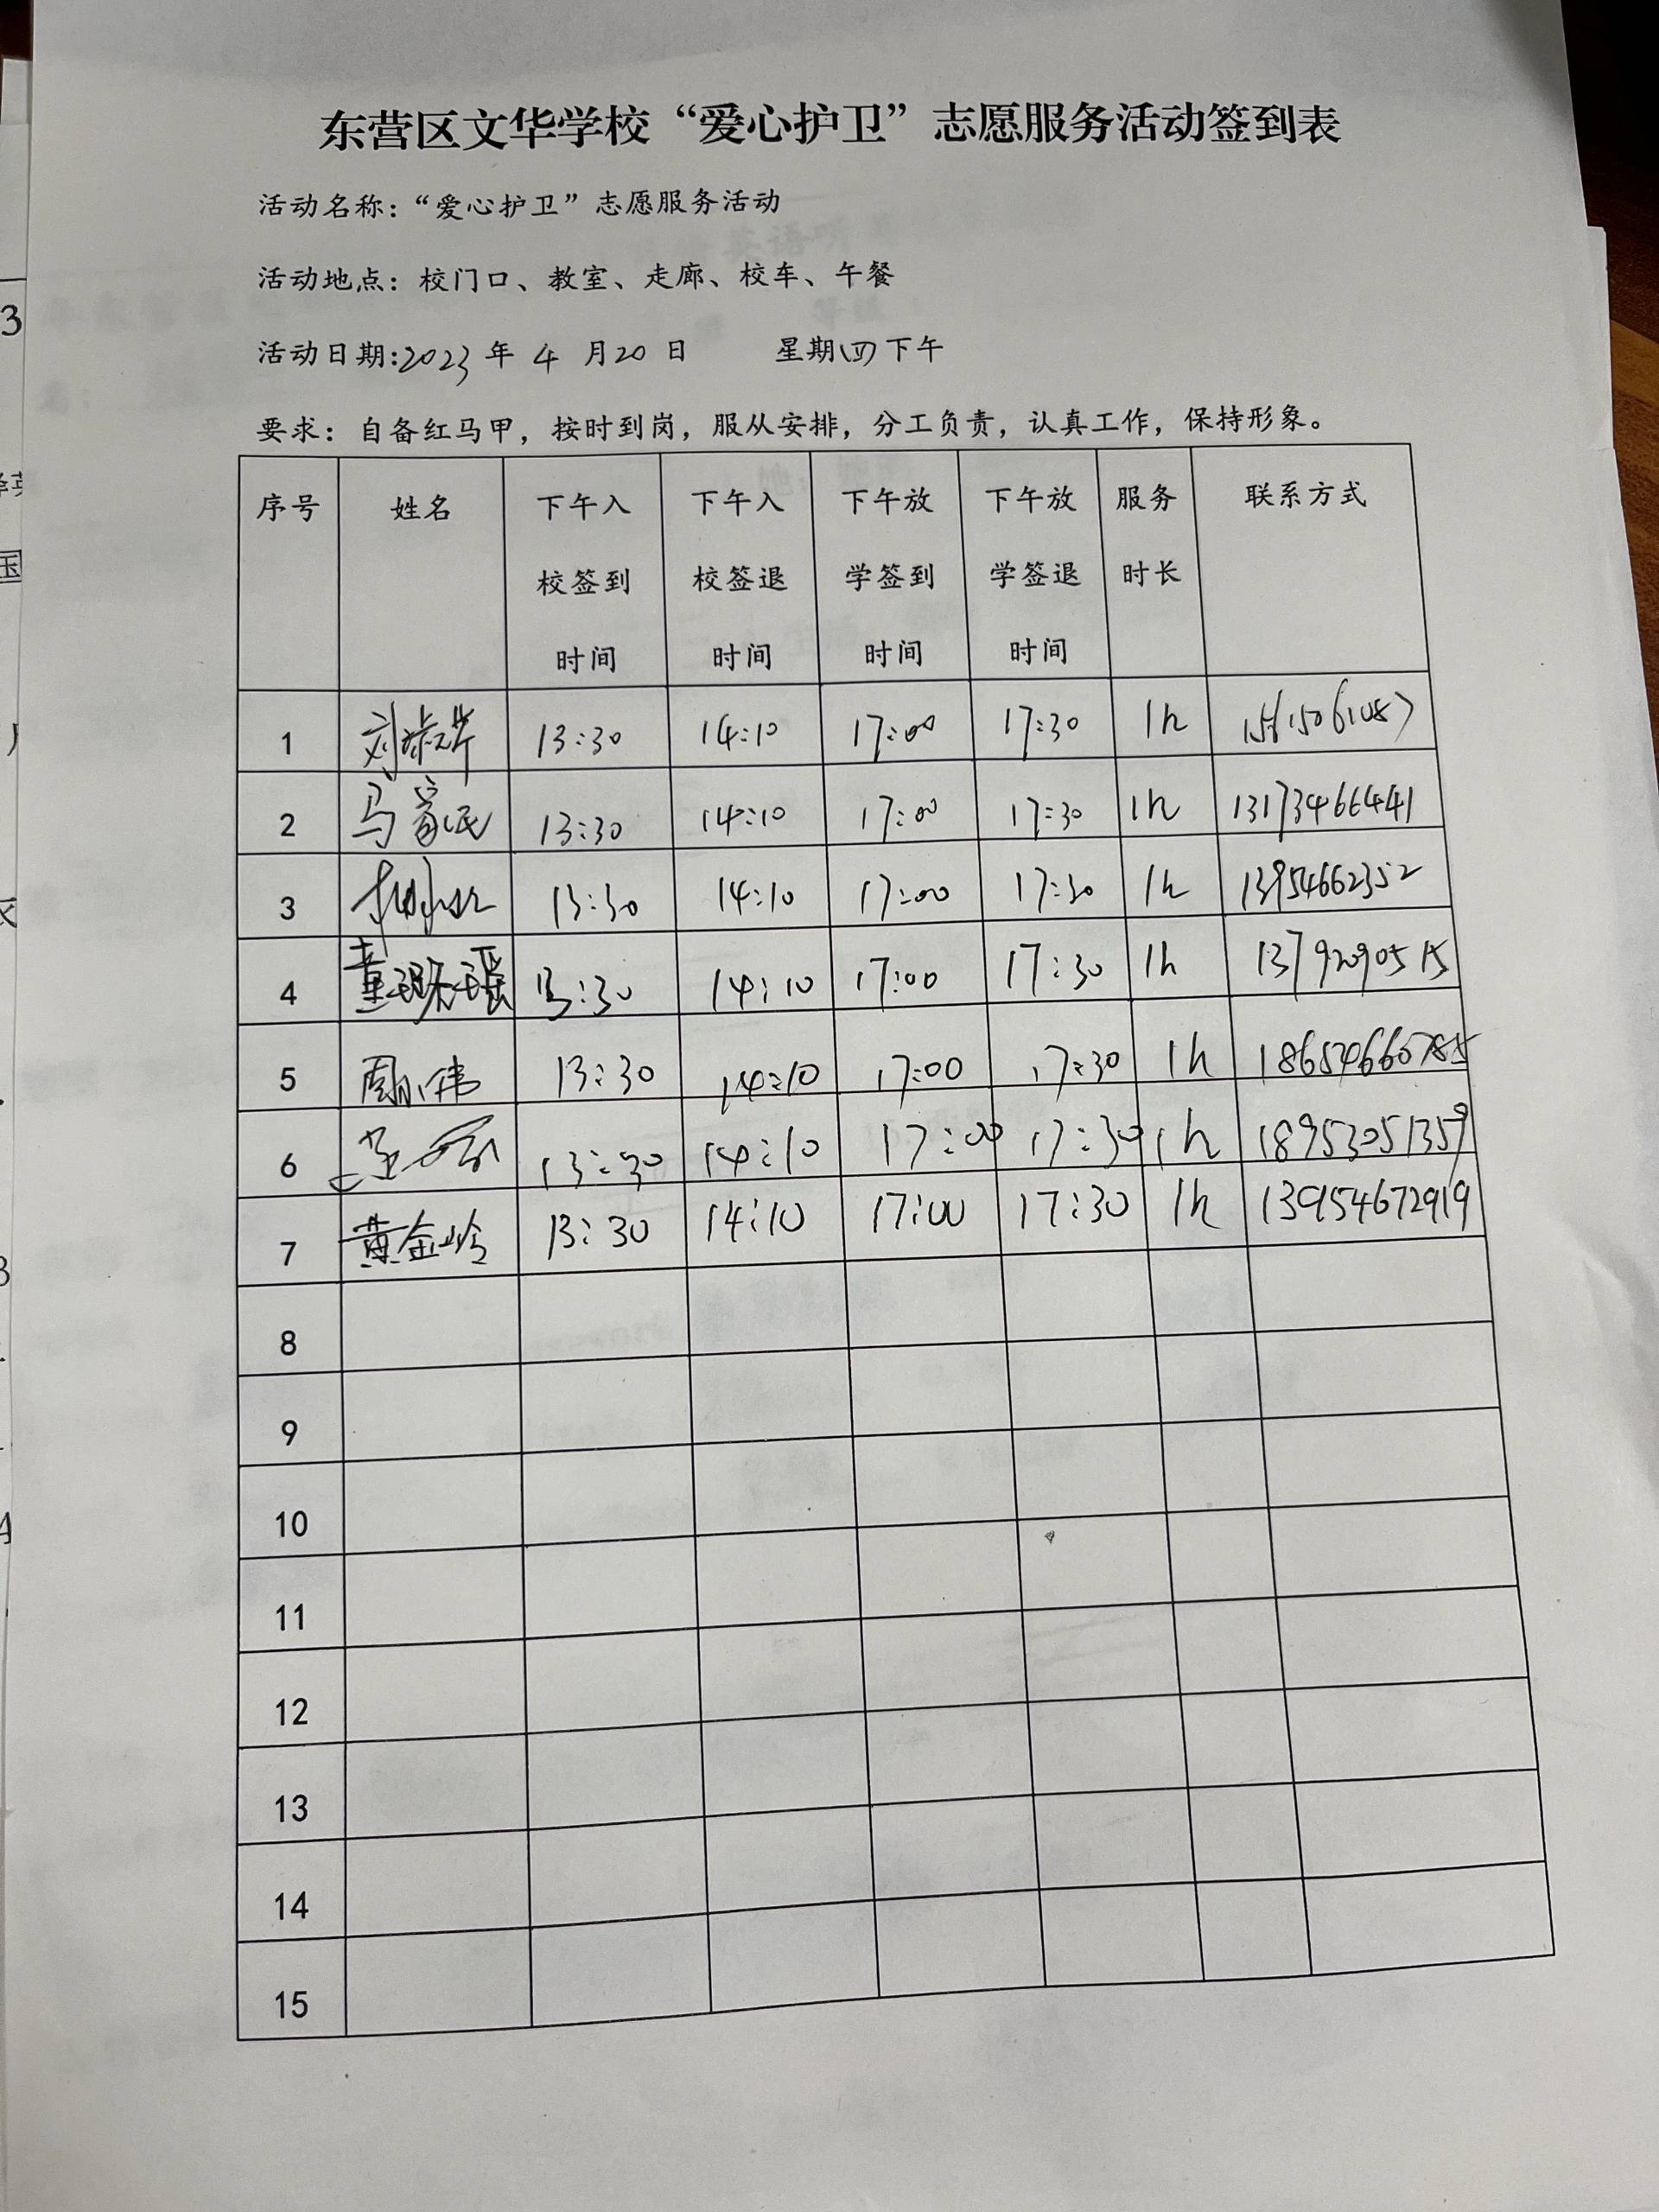 东营区文华学校“爱心护卫”志愿服务活动签到表
活动名称：“爱心护卫”志愿服务活动
活动地点：校门口、教室、走廊、校车、午餐
活动日期:2023 年 4 月20 日 星期(四)下午
要求：自备红马甲，按时到岗，服从安排，分工负责，认真工作，保持形象。
序号 姓名 下午入校签到时间 下午入校签退时间 下午放学签到时间 下午放学签退时间 服务时长 联系方式
1 13:30 14:10 17:00 17:30 1h
2 马富民 13:30 14:10 17:00 17:30 1h 13173466441
3 13:30 14:10 17:00 17:30 1h 13954662352
4 董珠瑶 13:30 14:10 17:00 17:30 1h 1379290515
5 周小伟 13:30 14:10 17:00 17:30 1h 18654660785
6 13:30 14:10 17:00 17:30 1h 18953051359
7 黄金岭 13:30 14:10 17:00 17:30 1h 13954672919
8
9
10
11
12
13
14
15